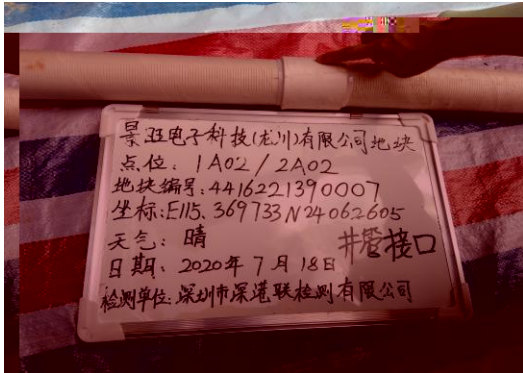 景亚电子科技(龙川)有限公司地块
点位: 1A02/2A02
地块编号:4416221390007
坐标:E115.369733N24062605
天气: 晴
井管接口
日期: 2020年7月18日
检测单位:深圳市深港联检测有限公司